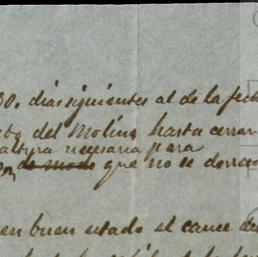 30. dias siguientes al de la fech
del Molino hasta cerrar
altura necesaria para
de modo que no se derram
en buen estado el cauce de